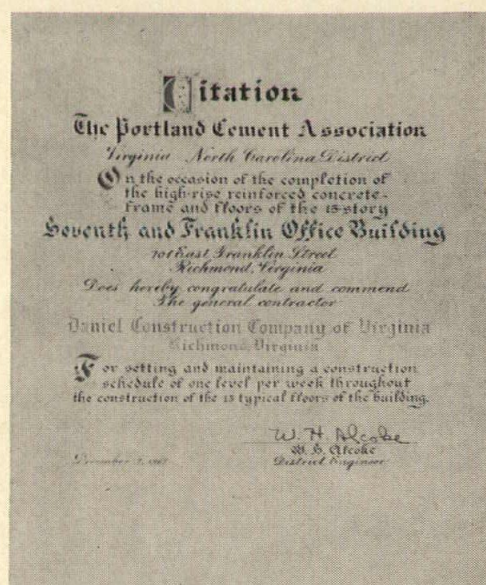 Citation
The Portland Cement Association
Virginia North Carolina District
On the occasion of the completion of
the high-rise reinforced concrete-
frame and floors of the 15-story
Seventh and Franklin Office Building
701 East Franklin Street
Richmond, Virginia
Does hereby congratulate and commend
The general contractor
Daniel Construction Company of Virginia
Richmond, Virginia
For setting and maintaining a construction
schedule of one level per week throughout
the construction of the 13 typical floors of the building.
W. H. Alcoke
W. H. Alcoke
December
District Engineer